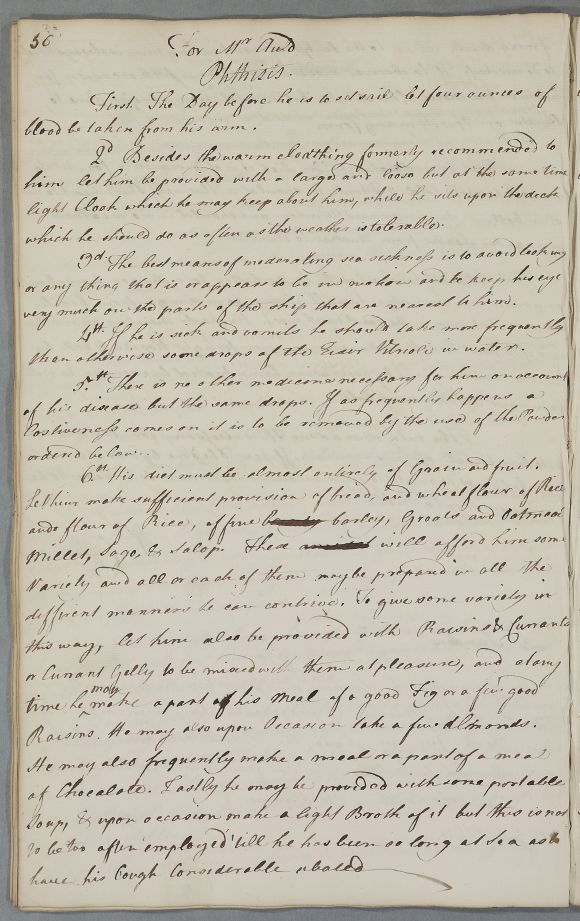 56
For Mr Auld
Phthisis.
First. The Day before he is to set sail let four ounces of
blood be taken from his arm.
2d Besides the warm cloathing formerly recommended to
him let him be provided with a large and loose but at the same time
light Cloak which he may keep about him, while he sits upon the deck
which he should do as often as the weather is tolerable.
3d. The best means of moderating sea sickness is to avoid looking
or any thing that is or appears to be in motion and to keep his eye
very much on the parts of the ship that are nearest to him.
4th If he is sick and vomits he should take more frequently
than otherwise some drops of the Elixir Vitriol: in water.
5th. There is no other medicine necessary for him on account
of his disease but the same drops. If as frequently happens a
Costiveness comes on it is to be removed by the use of the Powder
ordered below..
6th His diet must be almost entirely of Grain and fruit.
Let him make sufficient provision of bread, and wheat flour of Rice
and flour of Rice, of fine barley, Groats and Oatmeal
Millet, Sago, & Salop. These will afford him some
Variety and all or each of them may be prepard in all the
different manners he can contrive. To give some variety in
this way, let him also be provided with Raisins & Currants
or Currant Gelly to be mixed with them at pleasure, and at any
time he may make a part of his Meal of a good Fig or a few good
Raisins. He may also upon Occasion take a few Almonds.
He may also frequently make a meal or a part of a meal
of Chocalate. Lastly he may be provided with some portable
Soup, & upon occasion make a light Broth of it but this is not
to be too often employed till he has been so long at Sea as to
have his Cough Considerable abated